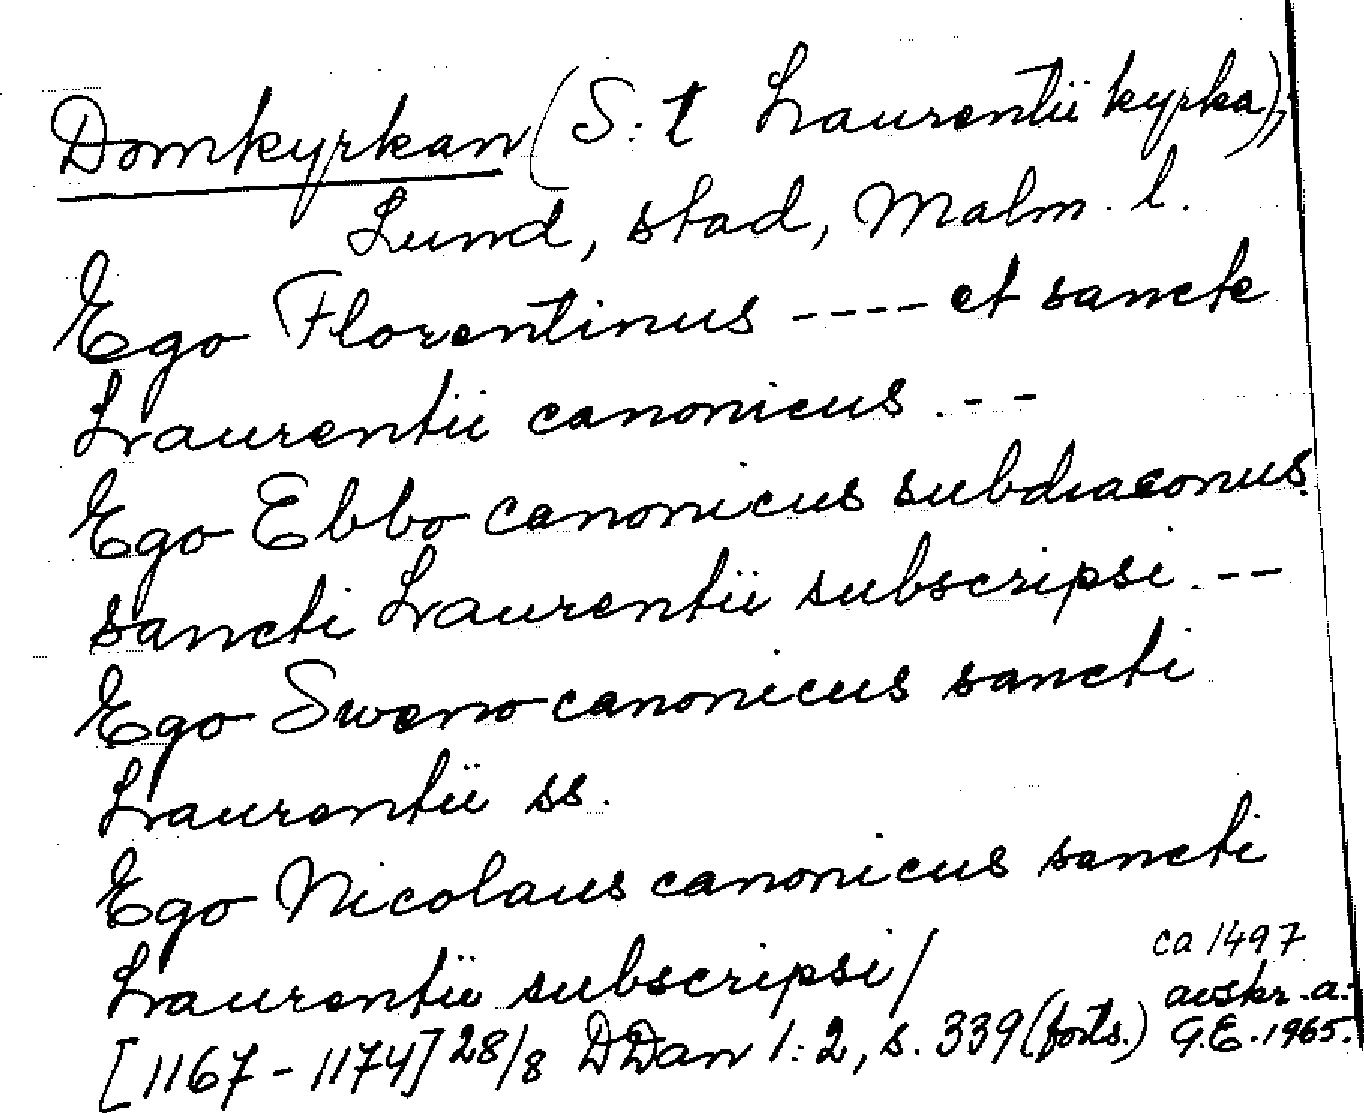 Domkyrkan (S:t Laurentii kyrka),
Lund, stad, Malm. l.
Ego Florentinus ---- et sancte
Laurentii canonicus . - -
Ego Ebbo canonicus subdiaconus
sancti Laurentii subscripsi. --
Ego Sweno canonicus sancti
Laurentii ss.
Ego Nicolaus canonicus sancti
Laurentii subscripsi/
ca 1497
avskr. a.
[1167 - 1174] 28/8 DDan 1:2, s. 339 (forts.) G.E. 1965.